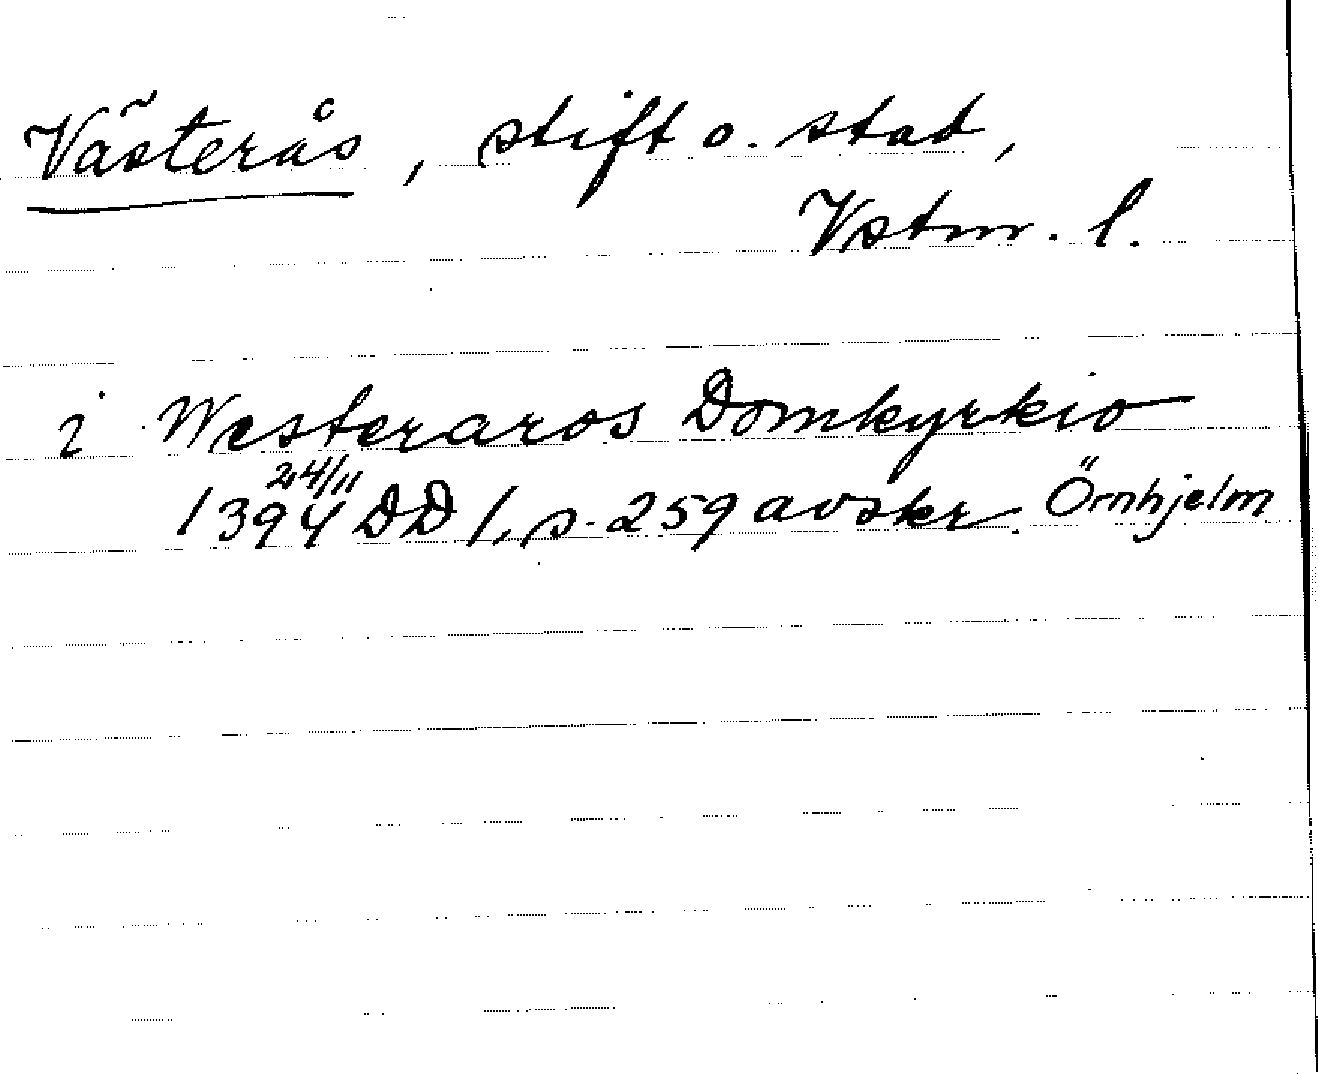 Västerås, stift o. stad,
Vstm. l.
i Westeraros Domkyrkio
24/11
1394 DD 1, s. 259 avskr. Örnhjelm